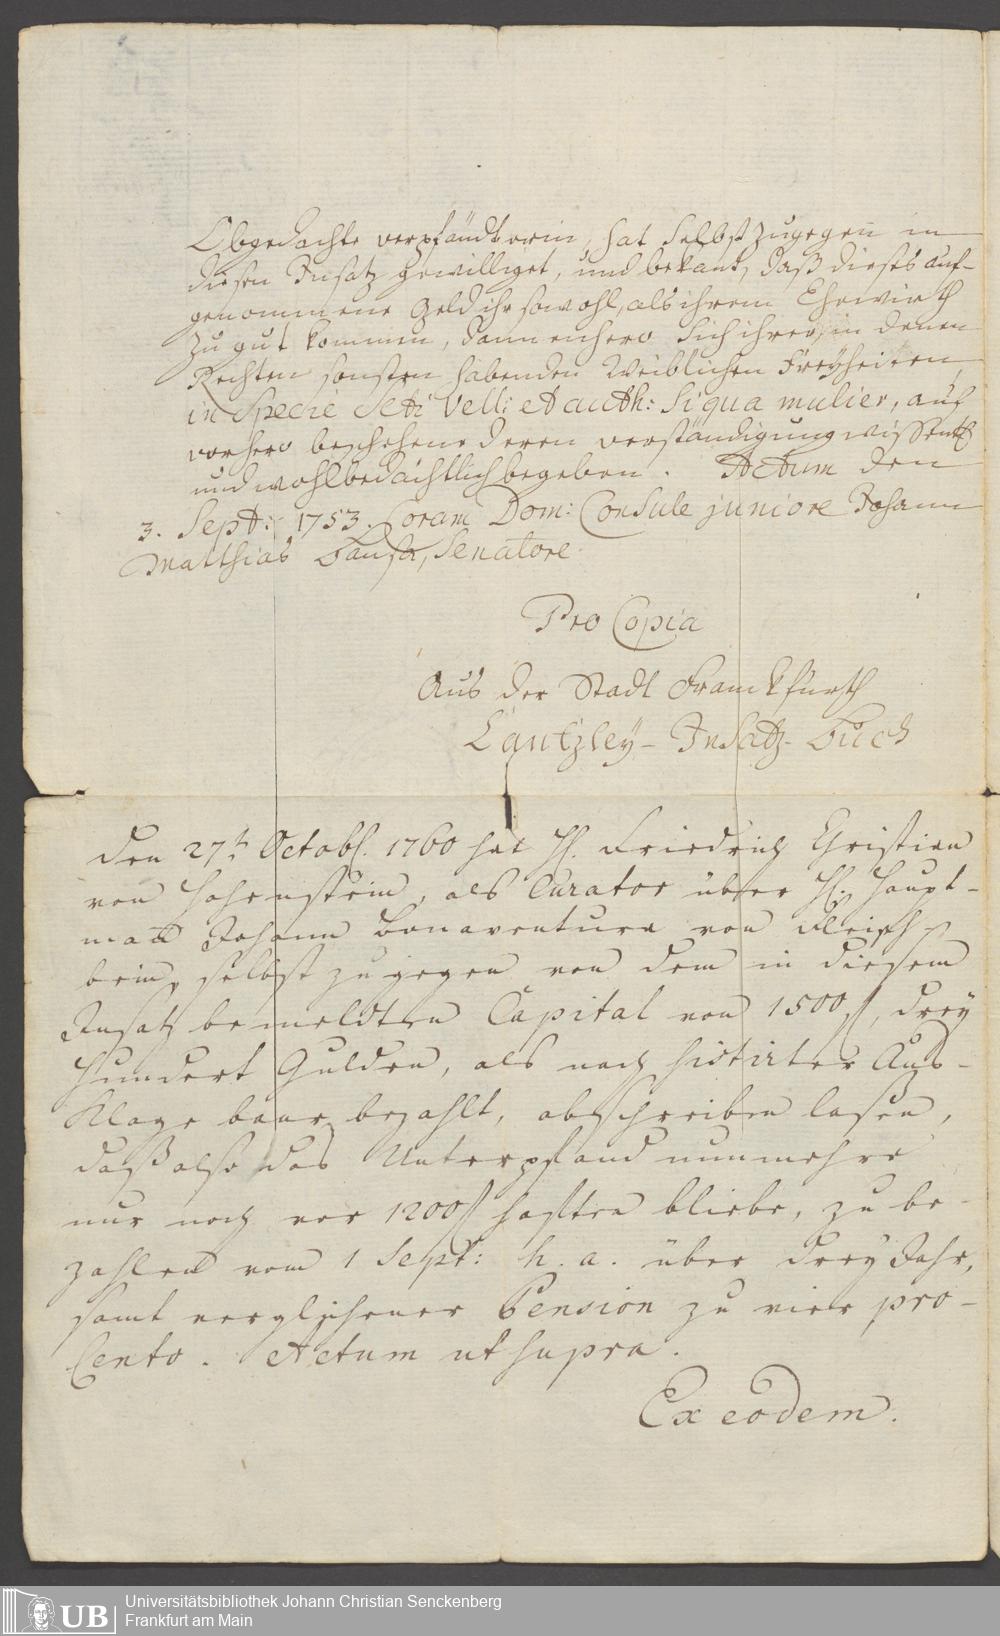 Obgedachte verpfändterin, hat selbst zugegen in
diesen Insatz gewilliget, und bekant, daß dieses auf-
genommene Geld ihr sowohl, als ihrem Ehewirth
zu gut kommen, dannenhero sich ihrer, in denen
Rechten sonsten habenden Weiblichen Freyheiten,
in Specie Scti Vell: et auth: si qua mulier, auf
vorhero beschehene deren verständigung wissentl.
und wohlbedächtlich begeben. Actum den
3. Sept: 1753. Coram Dom: Consule juniore Johann
Matthias Bansa, Senatore.
Pro Copia
Aus der Stadt Franckfurth
Cantzley-Insatz-Buch
Den 27t. Octobr. 1760 hat H. Friedrich Christian
von Hohenstein, als Curator über H. Haupt-
mañ Johann Bonaventura von Fleisch-
bein, selbst zugegen von dem in diesem
Insatz bemeldten Capital von 1500 f, drey
Hundert Gulden, als nach sistirter Aus-
Klage baar bezahlt, abschreiben laßen,
daß also das Unterpfand nunmehro
nur noch vor 1200 f hafften bliebe, zu be-
zahlen vom 1 Sept: h. a. über drey Jahr,
samt verglichener Pension zu vier pro-
Cento. Actum ut supra.
Ex eodem.
UB
Universitätsbibliothek Johann Christian Senckenberg
Frankfurt am Main